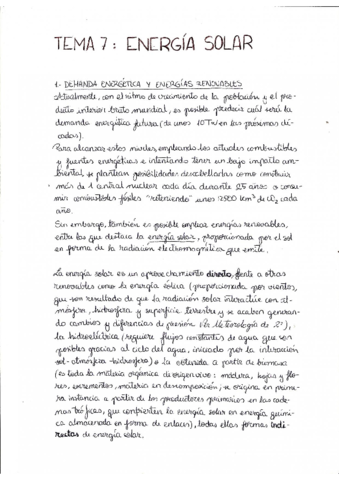 TEMA 7: ENERGÍA SOLAR
1. DEMANDA ENERGÉTICA Y ENERGÍAS RENOVABLES
Actualmente, con el ritmo de crecimiento de la población y el pro-
ducto interior bruto mundial, es posible predecir cuál será la
demanda energética futura (de unos 10 TW en las próximas dé-
cadas).
Para alcanzar estos niveles empleando los actuales combustibles
y fuentes energéticas e intentando tener un bajo impacto am-
biental, se plantean posibilidades descabelladas como construir
más de 1 central nuclear cada día durante 25 años o consu-
mir combustibles fósiles "reteniendo" unos 12500 km³ de CO₂ cada
año.
Sin embargo, también es posible emplear energías renovables,
entre las que destaca la energía solar, proporcionada por el sol
en forma de la radiación electromagnética que emite.
La energía solar es un aprovechamiento directo, frente a otras
renovables como la energía eólica (proporcionada por vientos,
que son resultado de que la radiación solar interactúe con at-
mósfera, hidrosfera y superficie terrestre y se acaben generan-
do cambios y diferencias de presión Ver Meteorología de 2º),
la hidroeléctrica (requiere flujos constantes de agua que son
posibles gracias al ciclo del agua, iniciado por la interacción
sol-atmósfera-hidrosfera) o la obtenida a partir de biomasa
(es toda la materia orgánica de origen vivo: madera, hojas y flo-
res, excrementos, materia en descomposición; se origina en prime-
ra instancia a partir de los productores primarios en las cade-
nas tróficas, que convierten la energía solar en energía quími-
ca almacenada en forma de enlaces), todas ellas formas indi-
rectas de energía solar.